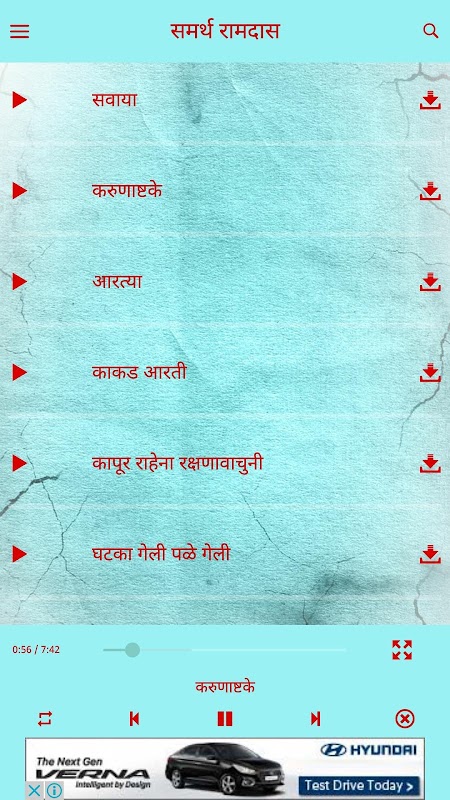 समर्थ रामदास
सवाया
करुणाष्टके
आरत्या
काकड आरती
कापूर राहेना रक्षणावाचुनी
घटका गेली पळे गेली
0:56 / 7:42
करुणाष्टके
The Next Gen
VERNA
Intelligent by Design
HYUNDAI
Test Drive Today >